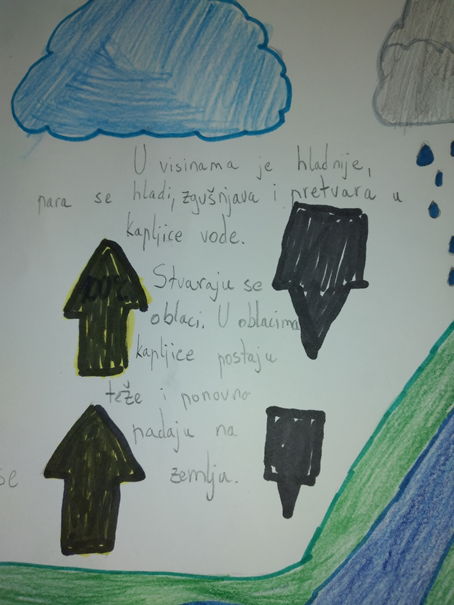 U visinama je hladnije,
para se hladi, zgušnjava i pretvara u
kapljice vode.
Stvaraju se
oblaci. U oblacima
kapljice postaju
teže i ponovno
padaju na
se zemlja.